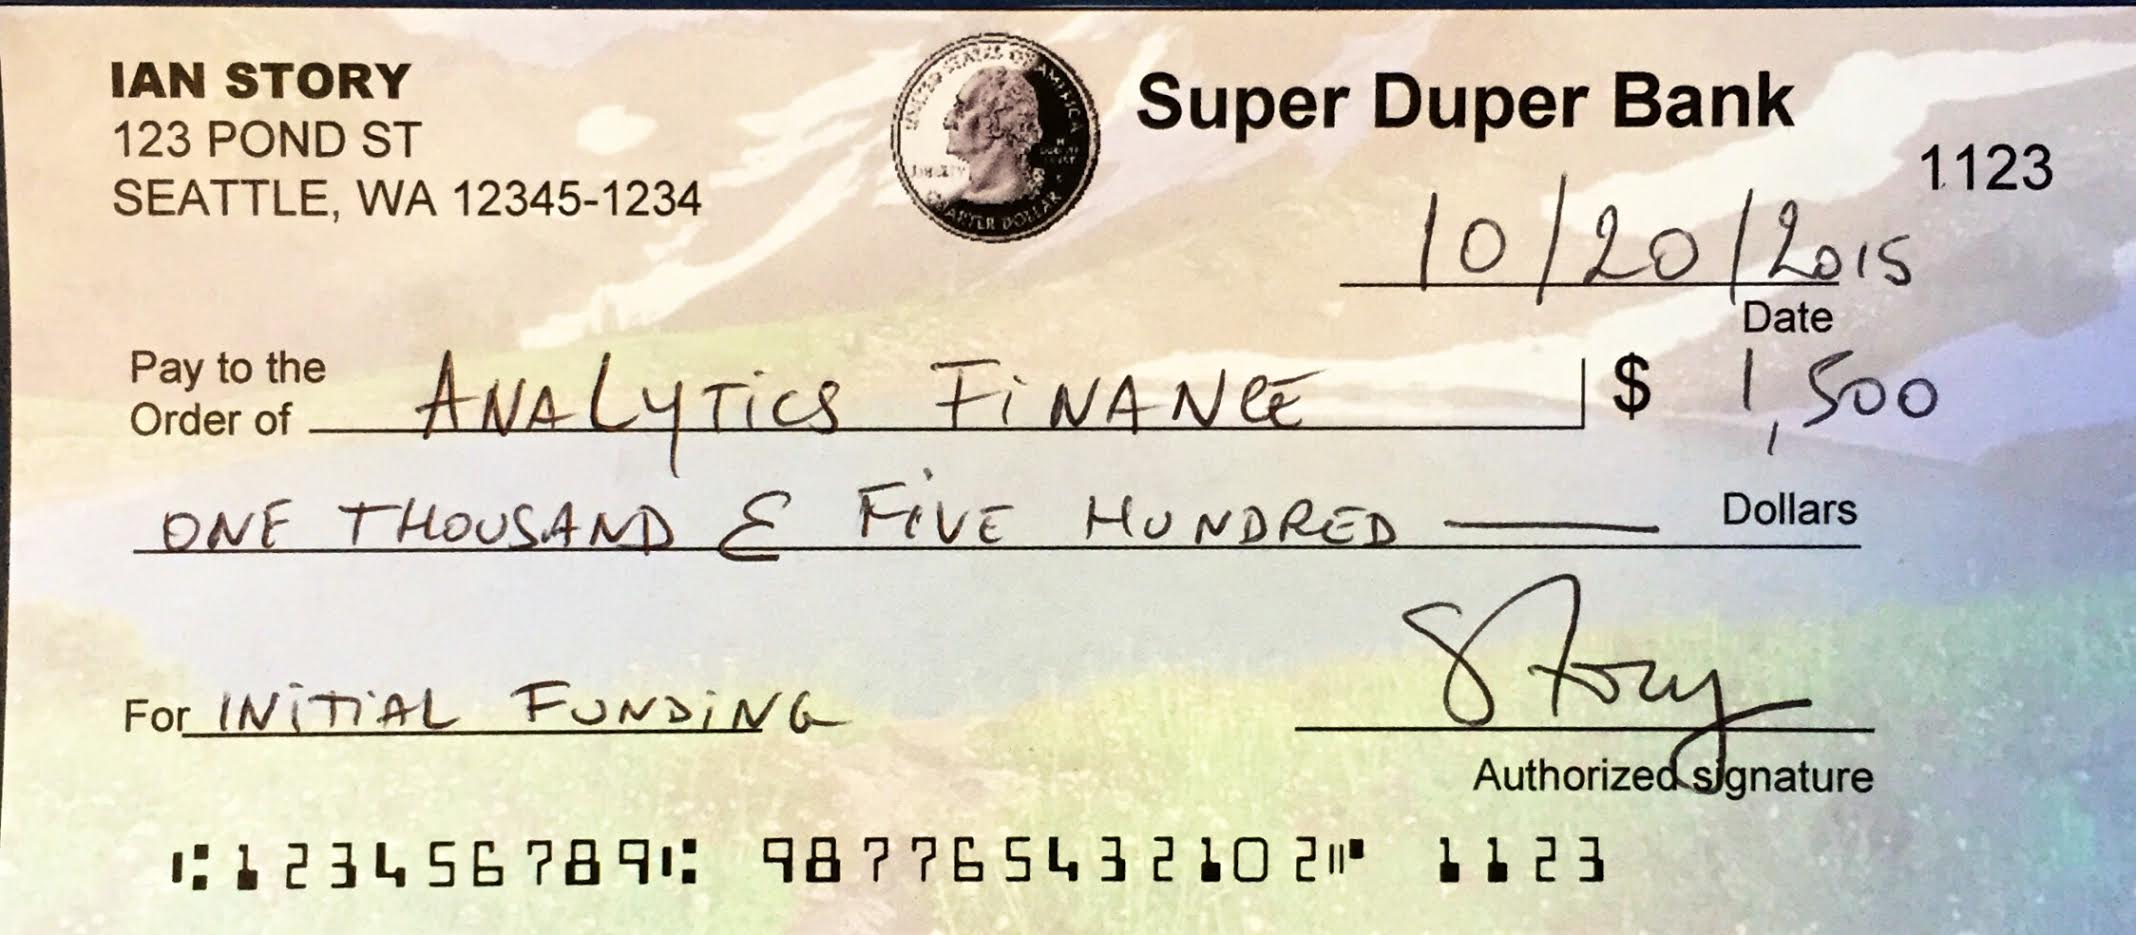 IAN STORY
123 POND ST
SEATTLE, WA 12345-1234
UNITED STATES OF AMERICA
LIBERTY
QUARTER DOLLAR
Super Duper Bank
1123
10/20/2015
Date
Pay to the
Order of ANALYTICS FINANCE $ 1,500
ONE THOUSAND & FIVE HUNDRED — Dollars
For INITIAL FUNDING
Story
Authorized signature
⑆123456789⑆ 98776543210 2⑈ 1123